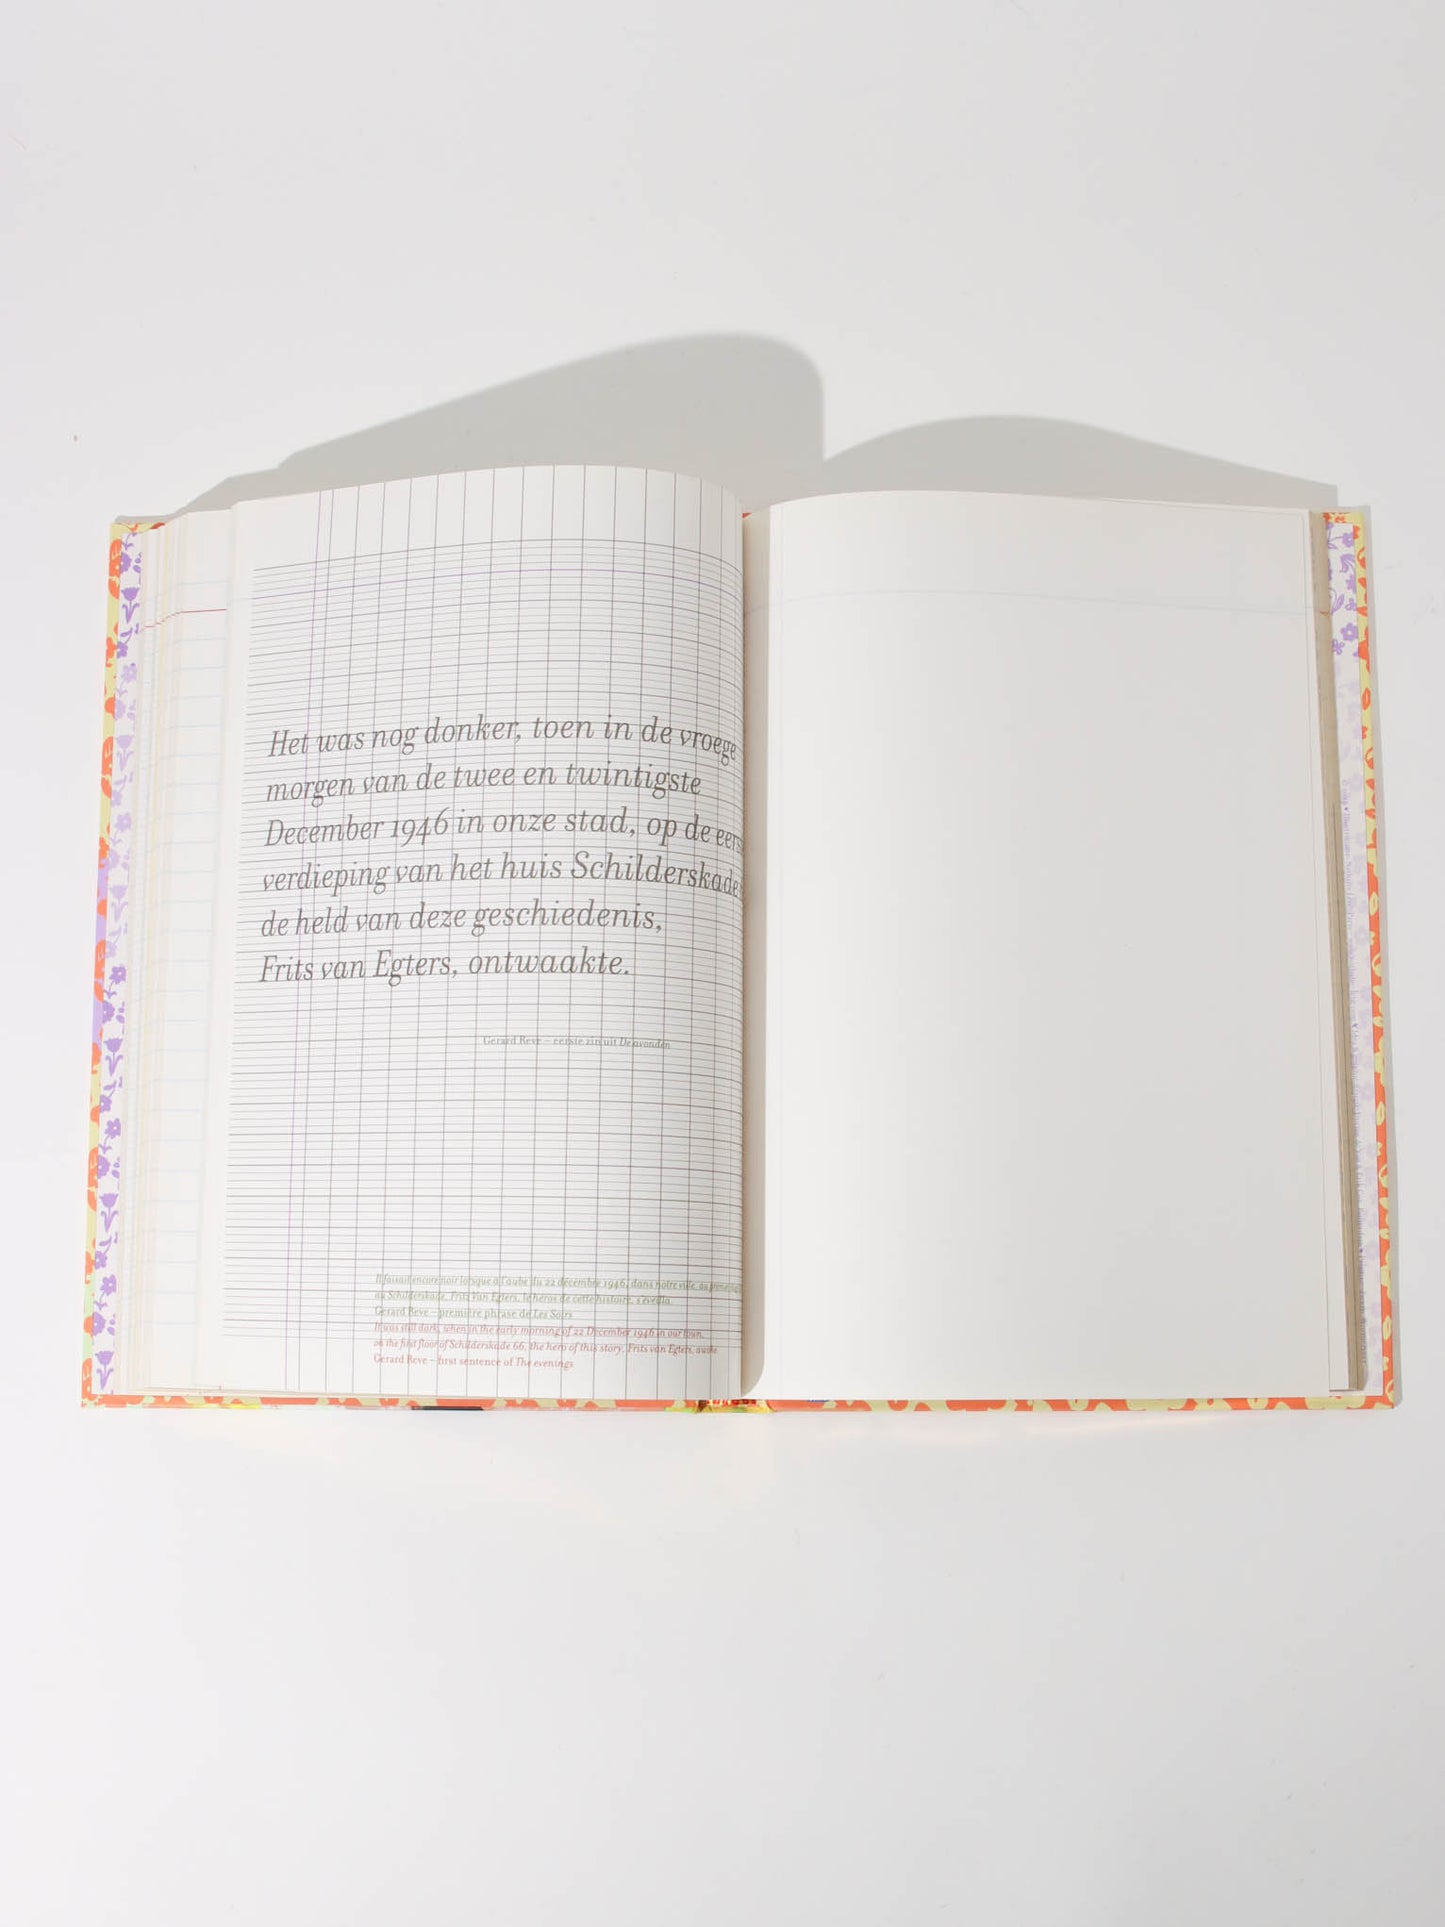 Het was nog donker, toen in de vroege
morgen van de twee en twintigste
December 1946 in onze stad, op de eers
verdieping van het huis Schilderskade
de held van deze geschiedenis,
Frits van Egters, ontwaakte.
Gerard Reve – eerste zin uit De avonden
Il faisait encore noir lorsque à l'aube du 22 décembre 1946, dans notre ville, au
au Schilderskade, Frits Van Egters, le héros de cette histoire, s'éveilla.
Gerard Reve – première phrase de Les Soirs
It was still dark, when in the early morning of 22 December 1946 in our town,
on the first floor of Schilderskade 66, the hero of this story, Frits van Egters, awoke
Gerard Reve – first sentence of The evenings